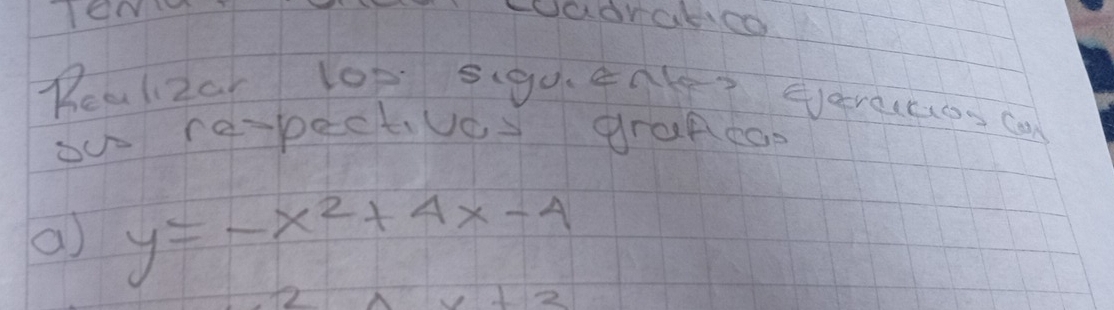 Cuadratica
Realizar los siguientes ejercicios con
sus respectivas graficas
a) y = -x² + 4x - 4